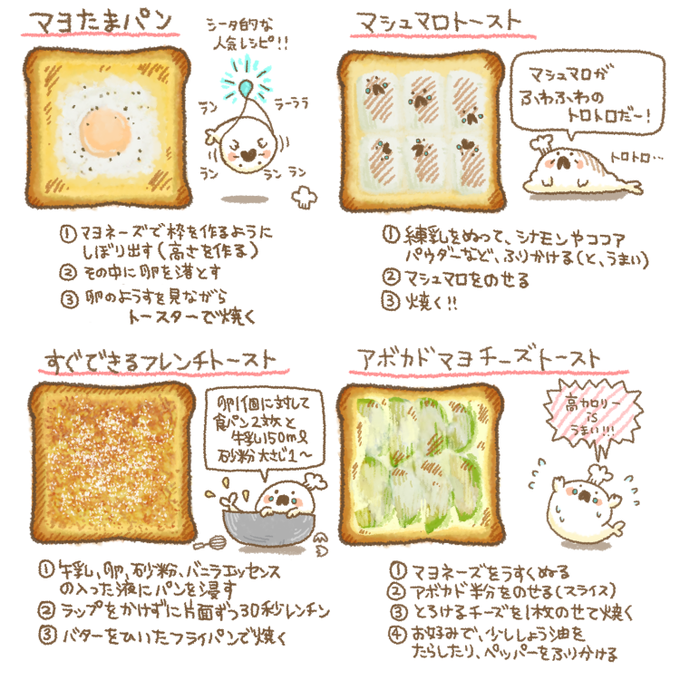 マヨたまパン
シータ的な
人気レシピ!!
ラン
ラーララ
ラン
ラン
ラン
① マヨネーズで枠を作るように
しぼり出す(高さを作る)
② その中に卵を落とす
③ 卵のようすを見ながら
トースターで焼く
マシュマロトースト
マシュマロが
ふわふわの
トロトロだ〜!
トロトロ…
① 練乳をぬって、シナモンやココア
パウダーなど、ふりかける(と、うまい)
② マシュマロをのせる
③ 焼く!!
すぐできるフレンチトースト
卵1個に対して
食パン2枚と
牛乳150ml
砂粉大さじ1〜
① 牛乳、卵、砂粉、バニラエッセンス
の入った液にパンを浸す
② ラップをかけずに片面ずつ30秒レンチン
③ バターをひいたフライパンで焼く
アボカドマヨチーズトースト
高カロリー
is
うまい!!!
① マヨネーズをうすくぬる
② アボカド半分をのせる(スライス)
③ とろけるチーズを1枚のせて焼く
④ お好みで、少ししょう油を
たらしたり、ペッパーをふりかける